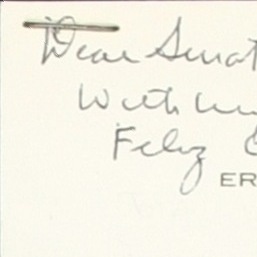 Dear Senat
With
Feliz
ER